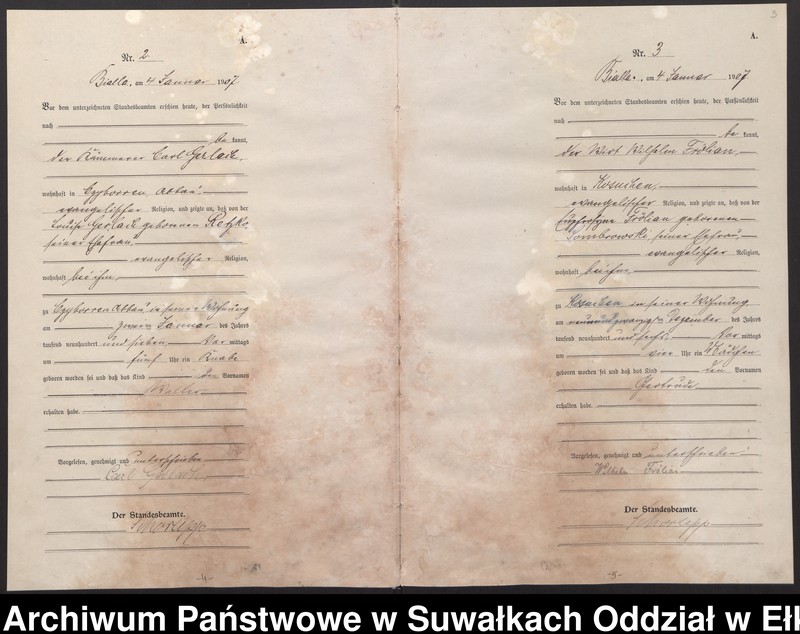 A.
Nr. 2
Bialla, am 4 Januar 1907
Vor dem unterzeichneten Standesbeamten erschien heute, der Persönlichkeit
nach
be kannt,
der Kämmerer Carl Gerlach,
wohnhaft in Czyborren Abbau,
evangelischer Religion, und zeigte an, daß von der
Louise Gerlach geborenen Retzko,
seiner Ehefrau,
evangelischer Religion,
wohnhaft bei ihm,
zu Czyborren Abbau in seiner Wohnung
am zweiten Januar des Jahres
tausend neunhundert und sieben Vor mittags
um fünf Uhr ein Knabe
geboren worden sei und daß das Kind den Vornamen
Walter
erhalten habe.
Vorgelesen, genehmigt und unterschrieben
Carl Gerlach
Der Standesbeamte.
Schorlepp
-4-
3
A.
Nr. 3
Bialla, am 4 Januar 1907
Vor dem unterzeichneten Standesbeamten erschien heute, der Persönlichkeit
nach
be kannt,
der Wirt Wilhelm Frölian,
wohnhaft in Kosuchen,
evangelischer Religion, und zeigte an, daß von der
Frölian geborenen
Dombrowski, seiner Ehefrau,
evangelischer Religion,
wohnhaft bei ihm
zu Kosuchen in seiner Wohnung
am neunundzwanzigsten Dezember des Jahres
tausend neunhundert und sechs Vor mittags
um vier Uhr ein Mädchen
geboren worden sei und daß das Kind den Vornamen
Gertrude
erhalten habe.
Vorgelesen, genehmigt und unterschrieben
Wilhelm Frölian
Der Standesbeamte.
Schorlepp
-5-
Archiwum Państwowe w Suwałkach Oddział w Ełk